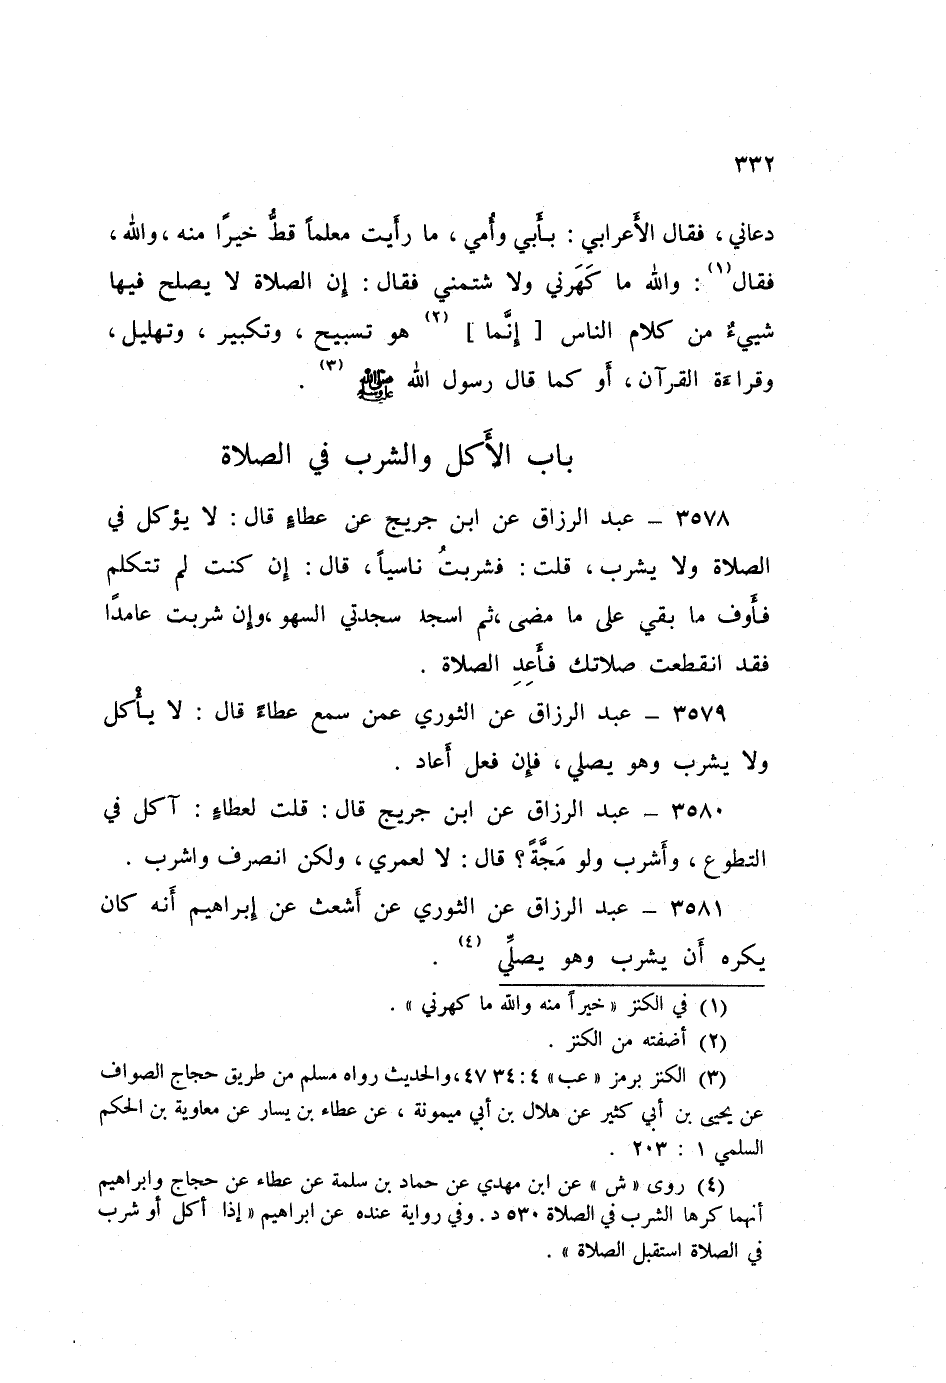 ٣٣٢
دعاني ، فقال الأَعرابي : بـأَبي وأُمي ، ما رأَيت معلماً قطُّ خيرًا منه ، والله ،
فقال(١) : والله ما كَهَرني ولا شتمني فقال : إن الصلاة لا يصلح فيها
شييءٌ من كلام الناس [ إنَّما ](٢) هو تسبيح ، وتكبير ، وتهليل ،
وقراءة القرآن ، أَو كما قال رسول الله ﷺ (٣) .
باب الأَكل والشرب في الصلاة
٣٥٧٨ – عبد الرزاق عن ابن جريج عن عطاءٍ قال : لا يؤكل في
الصلاة ولا يشرب ، قلت : فشربتُ ناسياً ، قال : إن كنت لم تتكلم
فأَوف ما بقي على ما مضى ،ثم اسجد سجدتي السهو ،وإن شربت عامدًا
فقد انقطعت صلاتك فأَعِدِ الصلاة .
٣٥٧٩ – عبد الرزاق عن الثوري عمن سمع عطاءً قال : لا يـأْكل
ولا يشرب وهو يصلي ، فإن فعل أَعاد .
٣٥٨٠ – عبد الرزاق عن ابن جريج قال : قلت لعطاءٍ : آكل في
التطوع ، وأَشرب ولو مَجَّةً ؟ قال : لا لعمري ، ولكن انصرف واشرب .
٣٥٨١ – عبد الرزاق عن الثوري عن أَشعث عن إبراهيم أَنه كان
يكره أَن يشرب وهو يصلِّي (٤) .
(١) في الكنز « خيراً منه والله ما كهرني » .
(٢) أضفته من الكنز .
(٣) الكنز برمز « عب » ٤ : ٤٧٣٤ ،والحديث رواه مسلم من طريق حجاج الصواف
عن يحيى بن أبي كثير عن هلال بن أبي ميمونة ، عن عطاء بن يسار عن معاوية بن الحكم
السلمي ١ : ٢٠٣ .
(٤) روى « ش » عن ابن مهدي عن حماد بن سلمة عن عطاء عن حجاج وابراهيم
أنهما كرها الشرب في الصلاة ٥٣٠ د . وفي رواية عنده عن ابراهيم « إذا أكل أو شرب
في الصلاة استقبل الصلاة » .